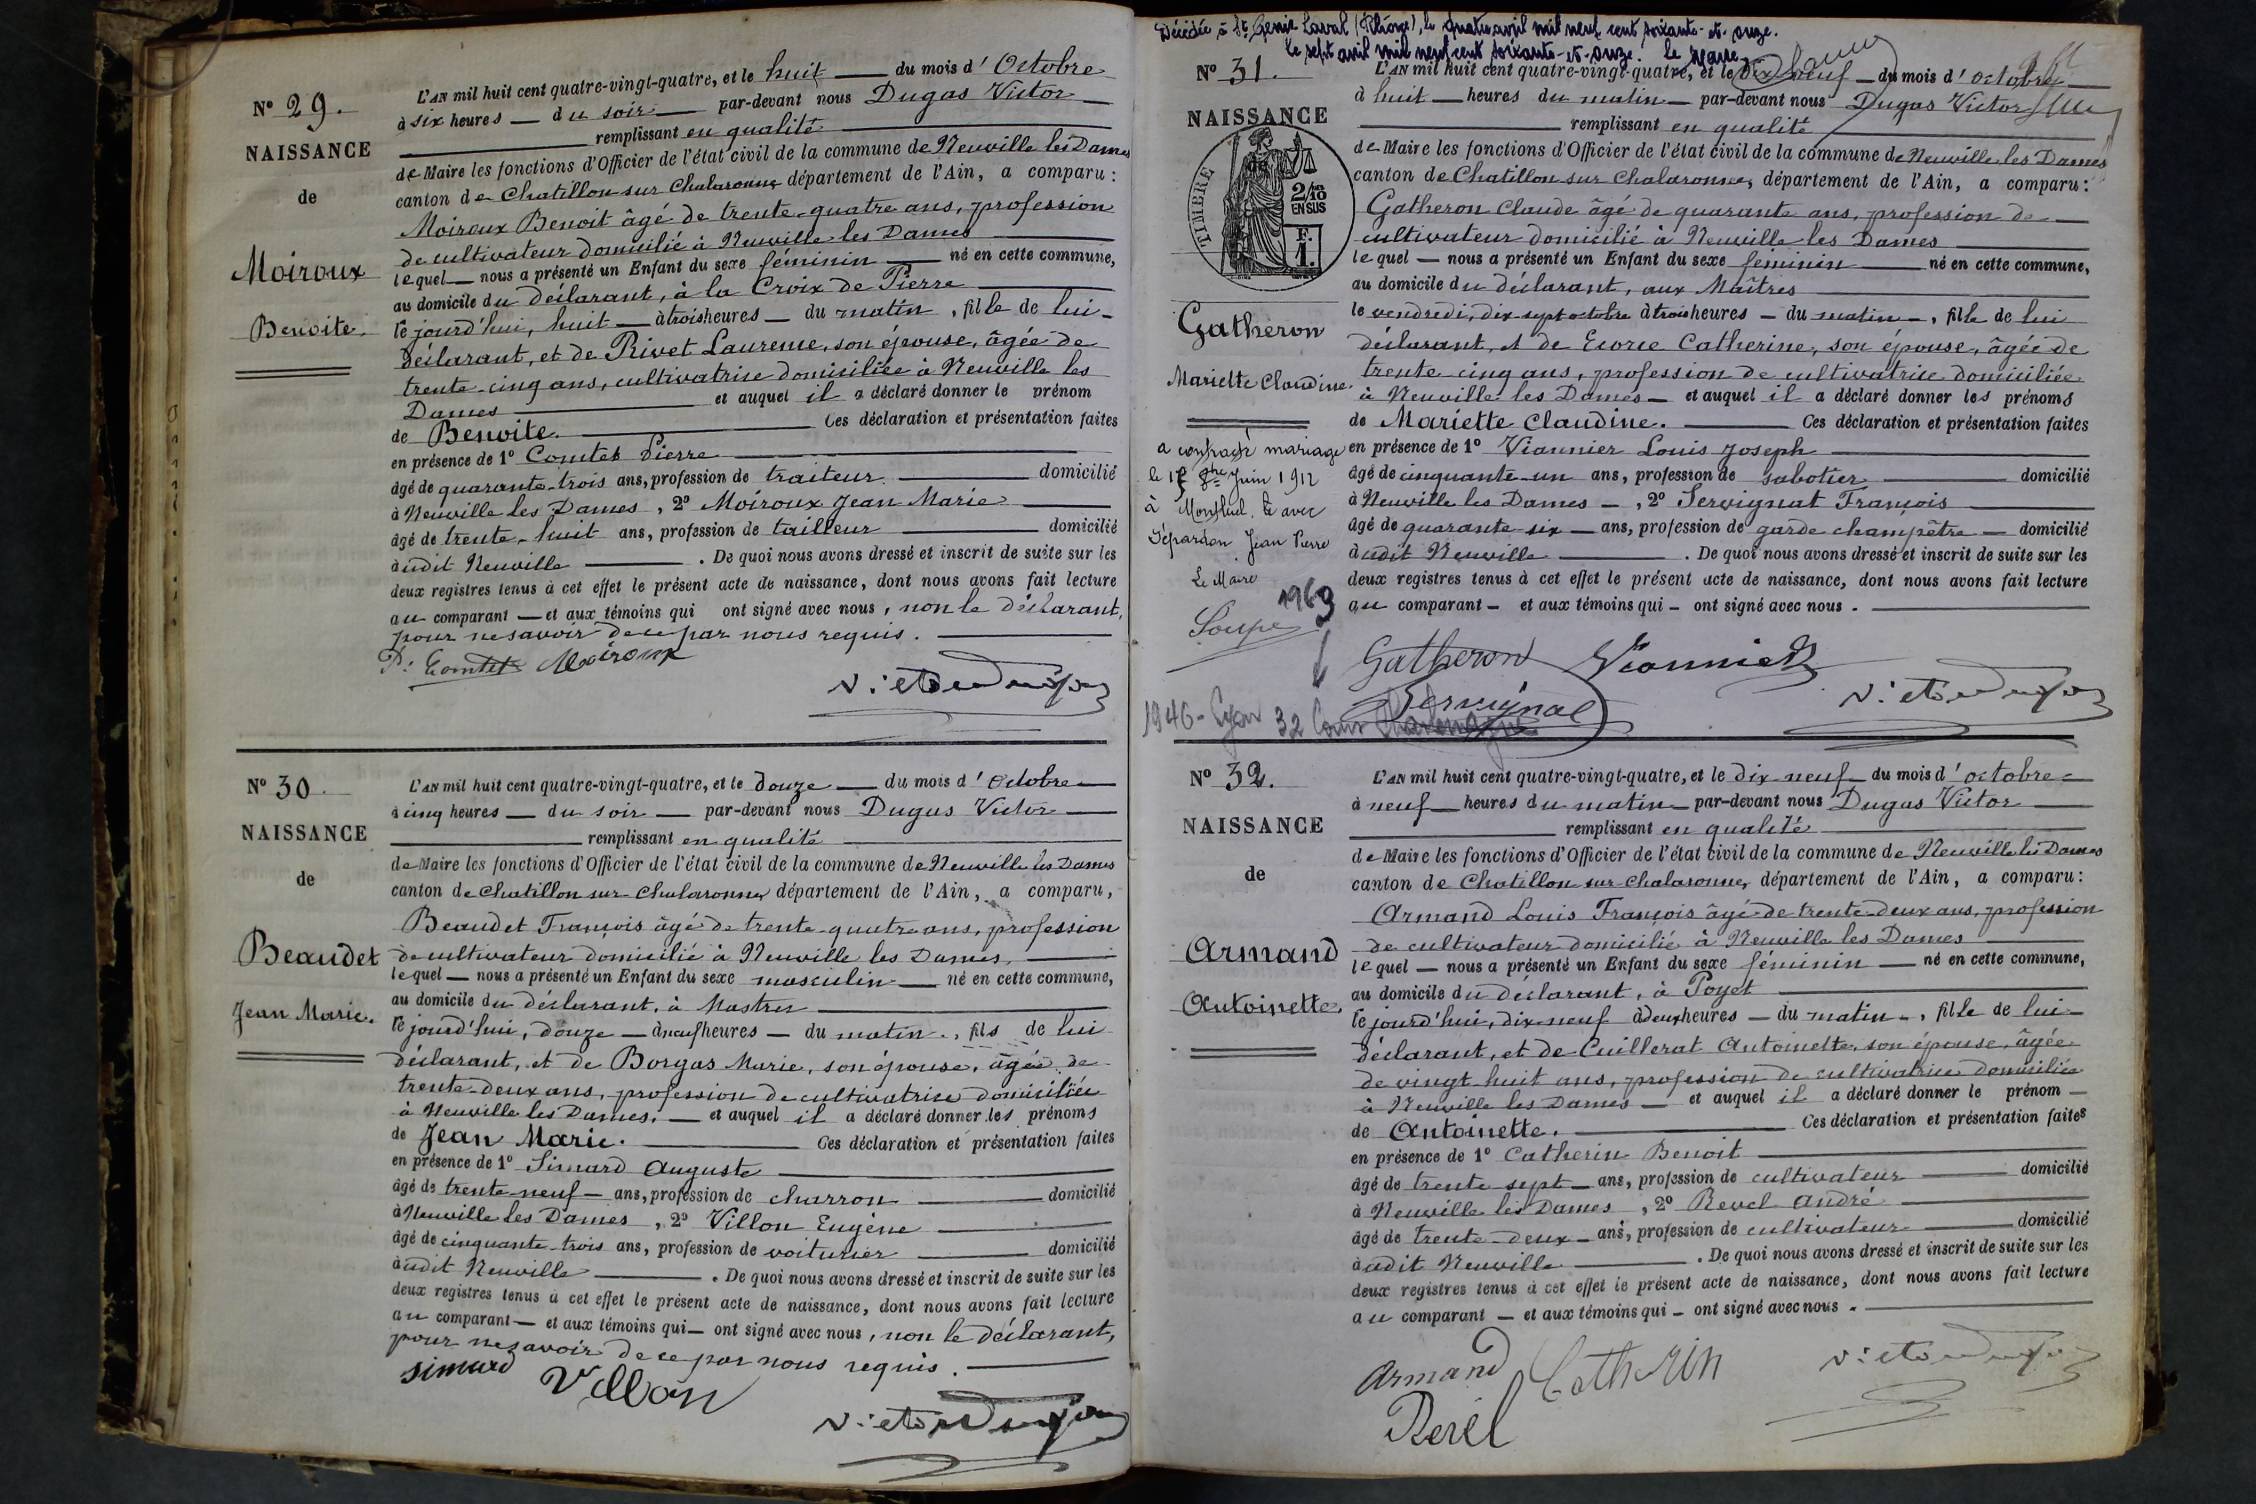 N° 29.
NAISSANCE
de
Moiroux
Benoite.
L'AN mil huit cent quatre-vingt-quatre, et le huit du mois d'Octobre
à six heures du soir par-devant nous Dugas Victor
remplissant en qualité
de Maire les fonctions d'Officier de l'état civil de la commune de Neuville les Dames
canton de Chatillon sur Chalaronne département de l'Ain, a comparu :
Moiroux Benoit âgé de trente-quatre ans, profession
de cultivateur domicilié à Neuville les Dames
lequel nous a présenté un Enfant du sexe féminin né en cette commune,
au domicile du déclarant, à la Croix de Pierre
le jourd'hui, huit à trois heures du matin, fille de lui
déclarant, et de Rivet Laurence, son épouse, âgée de
trente-cinq ans, cultivatrice domiciliée à Neuville les
Dames et auquel il a déclaré donner le prénom
de Benoite. Ces déclaration et présentation faites
en présence de 1° Comtet Pierre
âgé de quarante-trois ans, profession de traiteur domicilié
à Neuville les Dames, 2° Moiroux Jean Marie
âgé de trente-huit ans, profession de tailleur domicilié
audit Neuville. De quoi nous avons dressé et inscrit de suite sur les
deux registres tenus à cet effet le présent acte de naissance, dont nous avons fait lecture
au comparant et aux témoins qui ont signé avec nous, non le déclarant,
pour ne savoir de ce par nous requis.
P. Comtet Moiroux
Victor Dugas
N° 30
NAISSANCE
de
Beaudet
Jean Marie.
L'AN mil huit cent quatre-vingt-quatre, et le douze du mois d'Octobre
à cinq heures du soir par-devant nous Dugas Victor
remplissant en qualité
de Maire les fonctions d'Officier de l'état civil de la commune de Neuville les Dames
canton de Chatillon sur Chalaronne département de l'Ain, a comparu,
Beaudet François âgé de trente-quatre ans, profession
de cultivateur domicilié à Neuville les Dames,
lequel nous a présenté un Enfant du sexe masculin né en cette commune,
au domicile du déclarant, à Mastru
le jourd'hui, douze à neuf heures du matin, fils de lui
déclarant, et de Borgas Marie, son épouse, âgée de
trente-deux ans, profession de cultivatrice domiciliée
à Neuville les Dames, et auquel il a déclaré donner les prénoms
de Jean Marie. Ces déclaration et présentation faites
en présence de 1° Simard Auguste
âgé de trente-neuf ans, profession de charron domicilié
à Neuville les Dames, 2° Villon Eugène
âgé de cinquante-trois ans, profession de voiturier domicilié
audit Neuville. De quoi nous avons dressé et inscrit de suite sur les
deux registres tenus à cet effet le présent acte de naissance, dont nous avons fait lecture
au comparant et aux témoins qui ont signé avec nous, non le déclarant,
pour ne savoir de ce par nous requis.
Simard Villon
Victor Dugas
Décédée à St Genis Laval (Rhône), le quatre avril mil neuf cent soixante-et-onze.
le sept avril mil neuf cent soixante-et-onze. Le Maire,
N° 31.
NAISSANCE
TIMBRE
2/10
EN SUS
F.
1.
Gatheron
Mariette Claudine.
a contracté mariage
le Juin 1912
à Montluel avec
Tépardon Jean Pierre
Le Maire
Soupe
1969
1946 - Lyon 32 Cours Charlemagne
L'AN mil huit cent quatre-vingt-quatre, et le Dix neuf du mois d'octobre
à huit heures du matin par-devant nous Dugas Victor
remplissant en qualité
de Maire les fonctions d'Officier de l'état civil de la commune de Neuville les Dames
canton de Chatillon sur Chalaronne, département de l'Ain, a comparu :
Gatheron Claude âgé de quarante ans, profession de
cultivateur domicilié à Neuville les Dames
lequel nous a présenté un Enfant du sexe féminin né en cette commune,
au domicile du déclarant, aux Maîtres
le vendredi, dix-sept octobre à trois heures du matin, fille de lui
déclarant, et de Ecorce Catherine, son épouse, âgée de
trente-cinq ans, profession de cultivatrice domiciliée
à Neuville les Dames et auquel il a déclaré donner les prénoms
de Mariette Claudine. Ces déclaration et présentation faites
en présence de 1° Viannier Louis Joseph
âgé de cinquante-un ans, profession de sabotier domicilié
à Neuville les Dames, 2° Servignat François
âgé de quarante-six ans, profession de garde champêtre domicilié
audit Neuville. De quoi nous avons dressé et inscrit de suite sur les
deux registres tenus à cet effet le présent acte de naissance, dont nous avons fait lecture
au comparant et aux témoins qui ont signé avec nous.
Gatheron Viannier
Servignat
Victor Dugas
N° 32.
NAISSANCE
de
Armand
Antoinette.
L'AN mil huit cent quatre-vingt-quatre, et le dix-neuf du mois d'octobre
à neuf heures du matin par-devant nous Dugas Victor
remplissant en qualité
de Maire les fonctions d'Officier de l'état civil de la commune de Neuville les Dames
canton de Chatillon sur Chalaronne, département de l'Ain, a comparu :
Armand Louis François âgé de trente-deux ans, profession
de cultivateur domicilié à Neuville les Dames
lequel nous a présenté un Enfant du sexe féminin né en cette commune,
au domicile du déclarant, à Poyet
le jourd'hui, dix-neuf à deux heures du matin, fille de lui
déclarant, et de Cuillerat Antoinette, son épouse, âgée
de vingt-huit ans, profession de cultivatrice domiciliée
à Neuville les Dames et auquel il a déclaré donner le prénom
de Antoinette. Ces déclaration et présentation faites
en présence de 1° Catherin Benoit
âgé de trente-sept ans, profession de cultivateur domicilié
à Neuville les Dames, 2° Revel André
âgé de trente-deux ans, profession de cultivateur domicilié
audit Neuville. De quoi nous avons dressé et inscrit de suite sur les
deux registres tenus à cet effet le présent acte de naissance, dont nous avons fait lecture
au comparant et aux témoins qui ont signé avec nous.
Armand Catherin
Revel
Victor Dugas